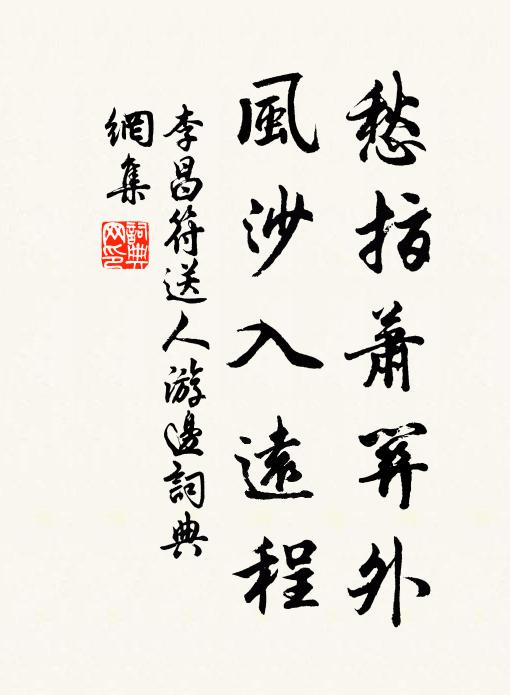 愁指萧関外
風沙入遠程
李昌符送人游邊詞典
網集
詞典
网印